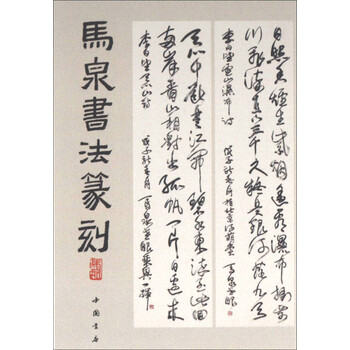 馬泉書法篆刻
日照香爐生紫烟遙看瀑布掛前
川飛流直下三千尺疑是銀河落九天
李白望廬山瀑布詩 戊子新春月於北京 馬泉
天門中斷楚江開碧水東流至此回
兩岸青山相對出孤帆一片日邊來
李白望天門山詩 戊子新春月 馬泉 乘興一揮
中國書店